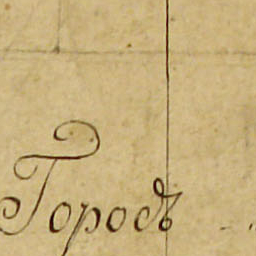 Городъ